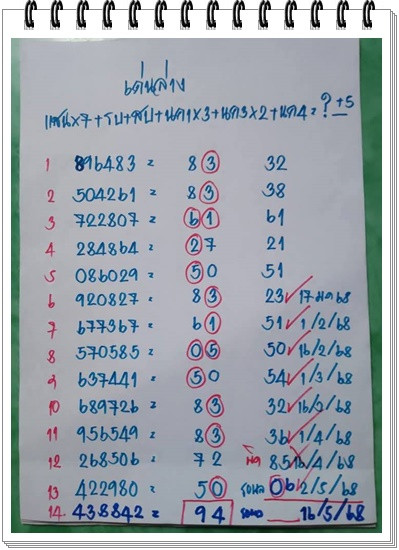 เด่นล่าง
แสนx7+รบ+สบ+นค1x3+นค3x2+นค4= ? +5
1 896483 = 83 32
2 504261 = 83 38
3 722807 = 61 61
4 284864 = 27 21
5 086029 = 50 51
6 920827 = 83 23 ✓ 17 มค 68
7 677367 = 61 51 ✓ 1/2/68
8 570585 = 05 50 ✓ 16/2/68
9 637441 = 50 54 ✓ 1/3/68
10 689726 = 83 32 ✓ 16/3/68
11 956549 = 83 36 ✓ 1/4/68
12 268506 = 72 ผิด 85 16/4/68
13 422980 = 50 06 2/5/68
14 438842 = 94 16/5/68